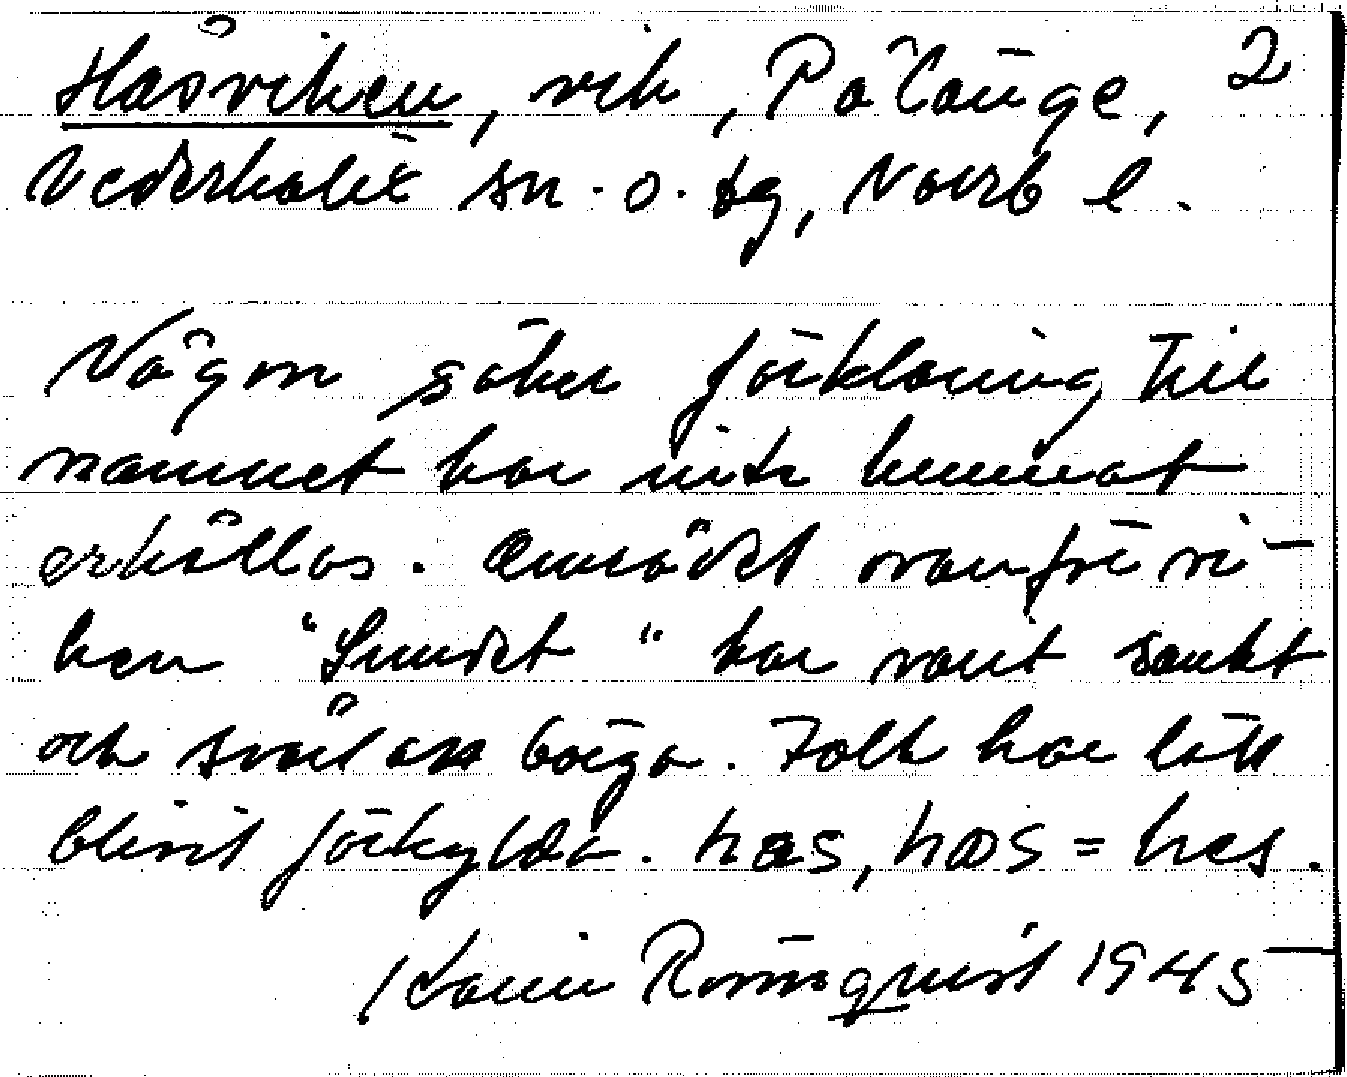 Håsviken, vik, Pålänge, 2
Nederkalix sn. o. tg, Norrb l.
Någon säker förklaring till
namnet har inte kunnat
erhållas. Området ovanför vi-
ken "Sundet" har varit sankt
och svårt att bärga. Folk har lätt
blivit förkylda. has, hås = hes.
Karin Rönnqvist 1945